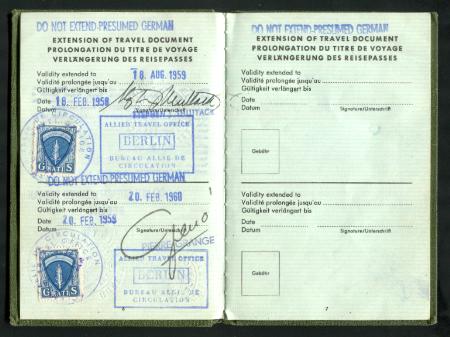 DO NOT EXTEND-PRESUMED GERMAN
EXTENSION OF TRAVEL DOCUMENT
PROLONGATION DU TITRE DE VOYAGE
VERLÄNGERUNG DES REISEPASSES
Validity extended to
Validité prolongée jusqu'au
Gültigkeit verlängert bis
18 AUG. 1959
Date
Datum
18. FEB. 1958
Signature/Unterschrift
ALLIED TRAVEL OFFICE
BERLIN
BUREAU ALLIE DE
CIRCULATION
GRATIS
DO NOT EXTEND-PRESUMED GERMAN
Validity extended to
Validité prolongée jusqu'au
Gültigkeit verlängert bis
20. FEB. 1960
Date
Datum
20. FEB. 1959
Signature/Unterschrift
PIERRE GRANGE
ALLIED TRAVEL OFFICE
BERLIN
BUREAU ALLIE DE
CIRCULATION
GRATIS
6
DO NOT EXTEND-PRESUMED GERMAN
EXTENSION OF TRAVEL DOCUMENT
PROLONGATION DU TITRE DE VOYAGE
VERLÄNGERUNG DES REISEPASSES
Validity extended to
Validité prolongée jusqu'au
Gültigkeit verlängert bis
Date
Datum
Signature/Unterschrift
Gebühr
Validity extended to
Validité prolongée jusqu'au
Gültigkeit verlängert bis
Date
Datum
Signature/Unterschrift
Gebühr
7